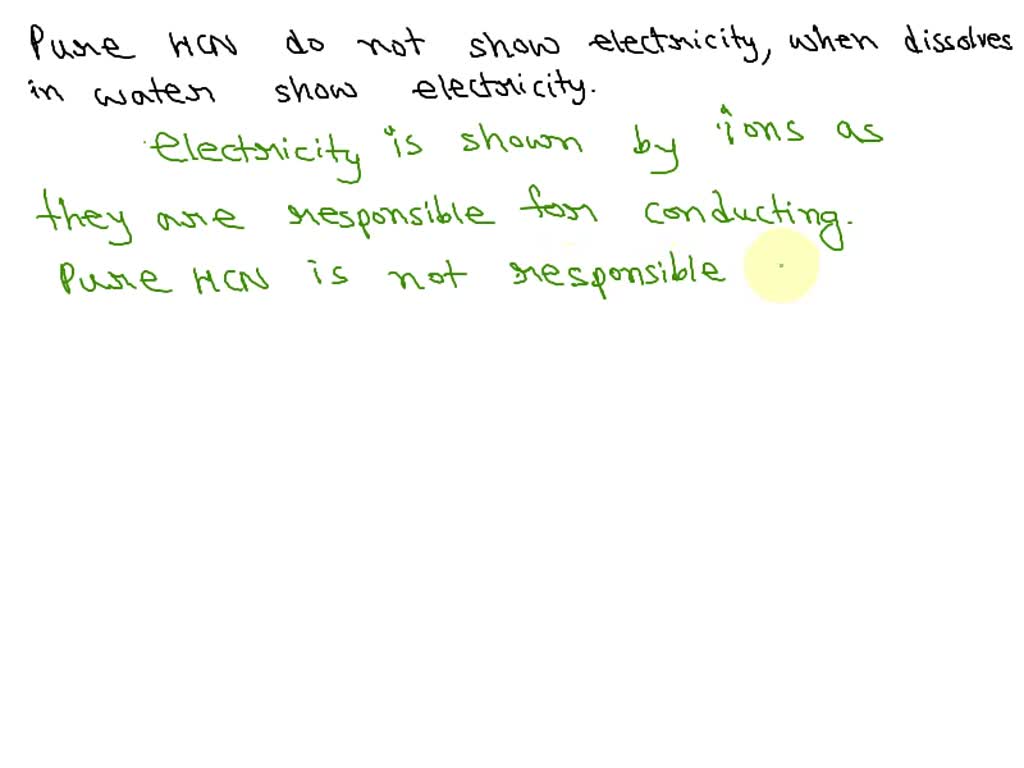 Pure HCN do not show electricity, when dissolves
in water show electricity.
Electricity is shown by ions as
they are responsible for conducting.
Pure HCN is not responsible